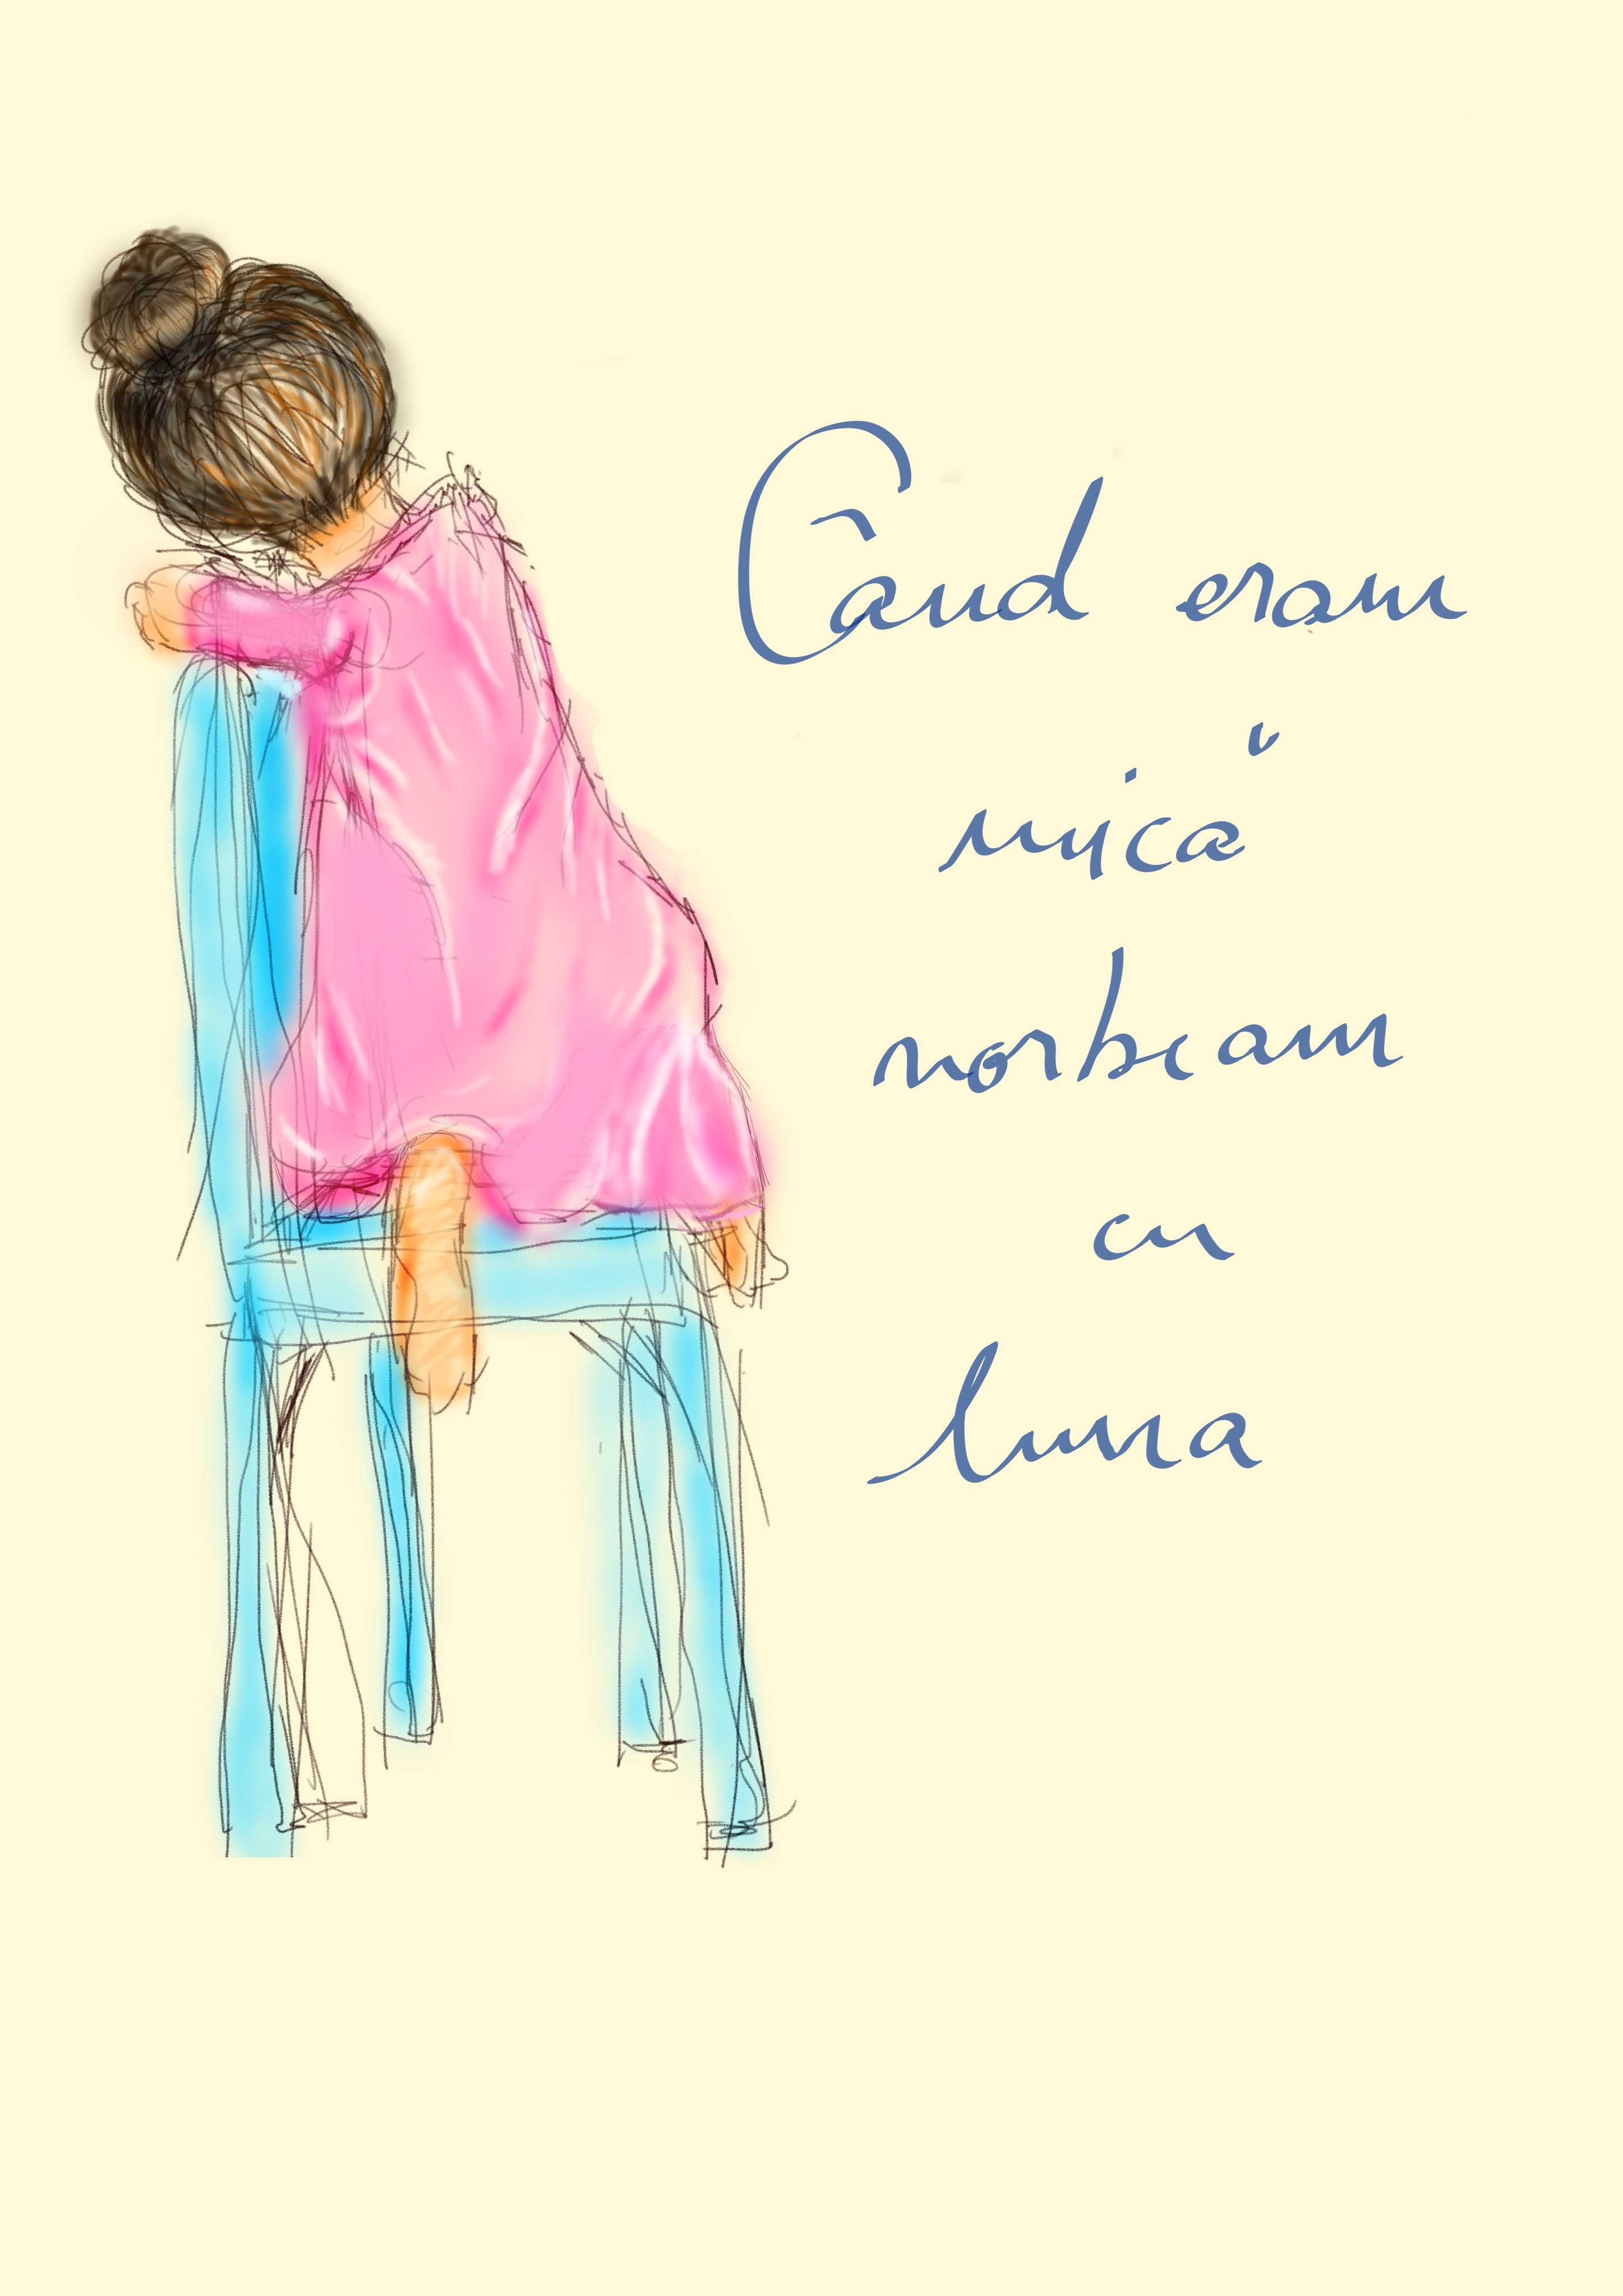 Când eram
mică
vorbeam
cu
luna